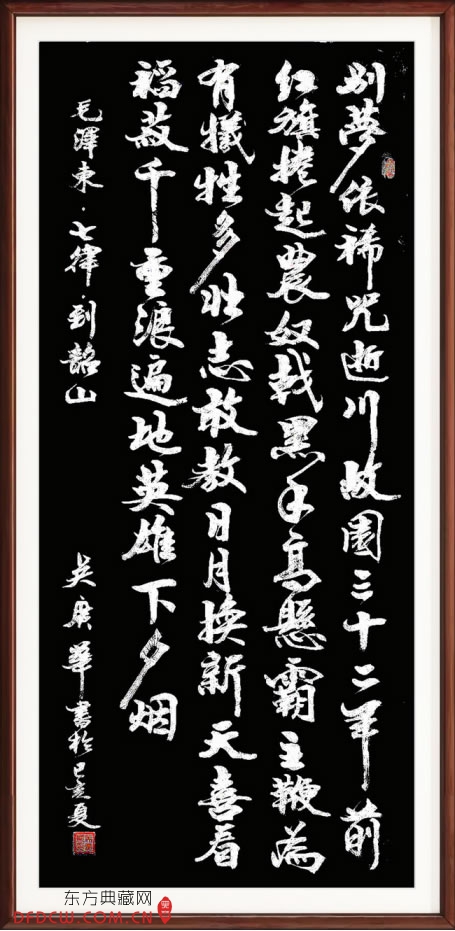 别夢依稀咒逝川故園三十二年前
红旗捲起農奴戟黑手高懸霸主鞭為
有犧牲多壮志敢教日月换新天喜看
稻菽千重浪遍地英雄下夕烟
毛澤東·七律·到韶山
吴廣華書於己亥夏
东方典藏网
DFDCW.COM.CN